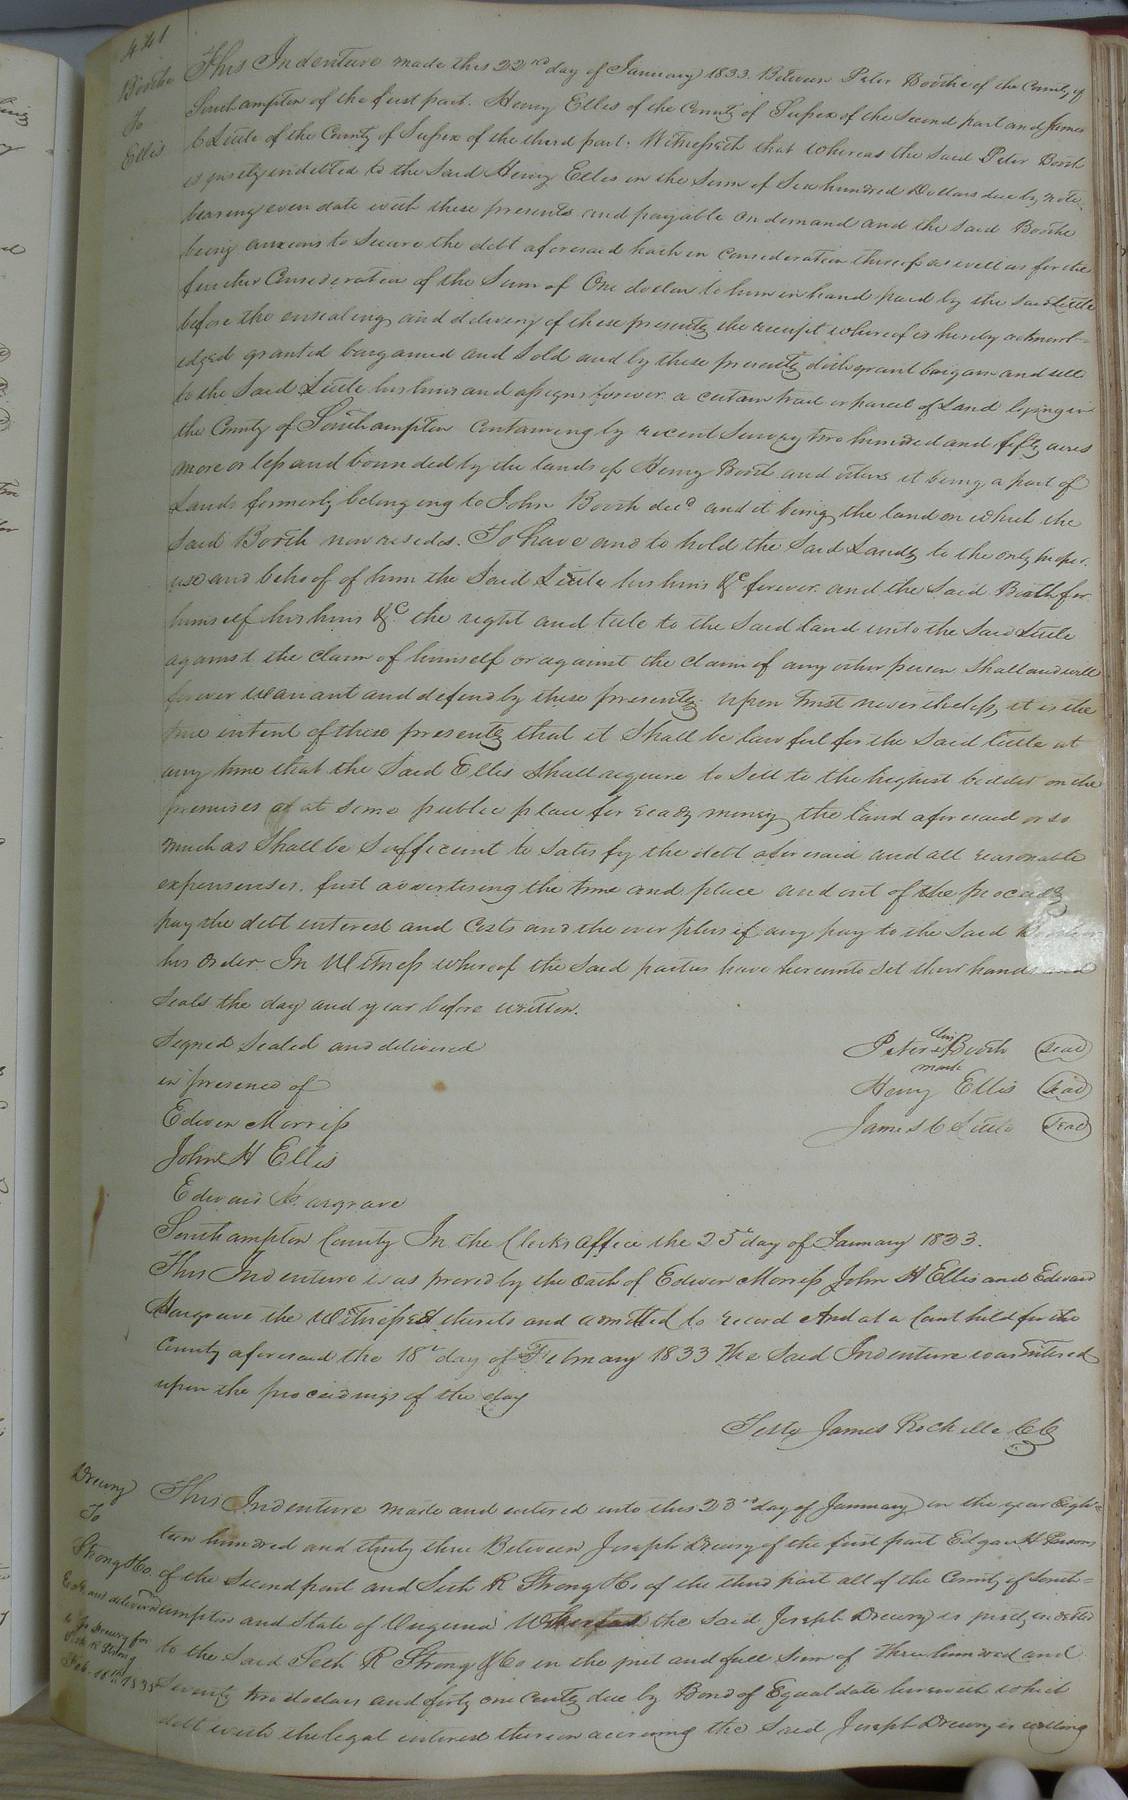 441
Boothe
To
Ellis
This Indenture made this 22nd day of January 1833. Between Peter Boothe of the County of
Southampton of the first part. Henry Ellis of the County of Sussex of the second part and James
C Little of the County of Sussex of the third part. Witnesseth that whereas the said Peter Booth
is justly indebted to the said Henry Ellis in the Sum of Six hundred Dollars due by note
bearing even date with these presents and payable on demand and the said Boothe
being anxious to Secure the debt aforesaid hath in consideration thereof as well as for the
further Consideration of the Sum of One dollar to him in hand paid by the said Little
before the ensealing and delivery of these presents the receipt whereof is hereby acknowl=
edged granted bargained and Sold and by these presents doth grant bargain and sell
to the Said Little his heirs and assigns forever a certain tract or parcel of Land lying in
the County of Southampton Containing by recent Survey two hundred and fifty acres
more or less and bounded by the lands of Henry Booth and others it being a part of
Lands formerly belonging to John Booth decd and it being the land on which the
said Booth now resides. To have and to hold the Said Lands to the only proper
use and behoof of him the Said Little his heirs &c forever. and the Said Booth for
himself his heirs &c the right and title to the Said Land unto the Said Little
against the claim of himself or against the claim of any other person Shall and will
forever Warrant and defend by these presents. Upon trust nevertheless, it is the
true intent of these presents that it Shall be lawful for the Said Little at
any time that the Said Ellis Shall require to Sell to the highest bidder on the
premises or at some public place for ready money the land aforesaid or so
much as Shall be Sufficient to Satisfy the debt aforesaid and all reasonable
expenses. first advertising the time and place and out of the proceeds
pay the debt interest and Costs and the over plus if any pay to the Said
his Order. In Witness whereof the Said parties have hereunto Set their hands and
Seals the day and year before written.
Signed Sealed and delivered
in presence of
Edwin Morriss
John H Ellis
Edward Hargrave
Peter his Booth Seal
mark
Henry Ellis Seal
James C Little Seal
Southampton County In the Clerks Office the 25th day of January 1833.
This Indenture was proved by the Oath of Edwin Morriss John H Ellis and Edward
Hargrave the Witnesses thereto and admitted to record And at a Court held for the
County aforesaid the 18th day of February 1833 The Said Indenture was entered
upon the proceedings of the day
Teste James Rochelle CC
Drewry
To
Strong & Co.
and delivered
to Jo Drewry for
Seth R Strong
Feb. 18th 1835
This Indenture made and entered into this 23rd day of January in the year Eigh=
teen hundred and thirty three Between Joseph Drewry of the first part Edgar H Parsons
of the Second part and Seth R Strong & Co of the third part all of the County of South=
ampton and State of Virginia Whereas the Said Joseph Drewry is justly indebted
to the Said Seth R Strong & Co in the just and full Sum of Three hundred and
Seventy two dollars and forty one cents due by Bond of Equal date herewith which
debt with the legal interest thereon accruing the Said Joseph Drewry is willing